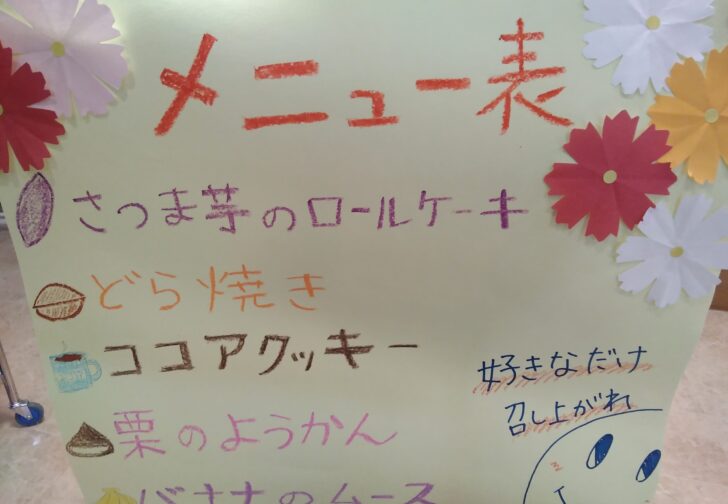 メニュー表
さつま芋のロールケーキ
どら焼き
ココアクッキー
栗のようかん
バナナのムース
好きなだけ
召し上がれ